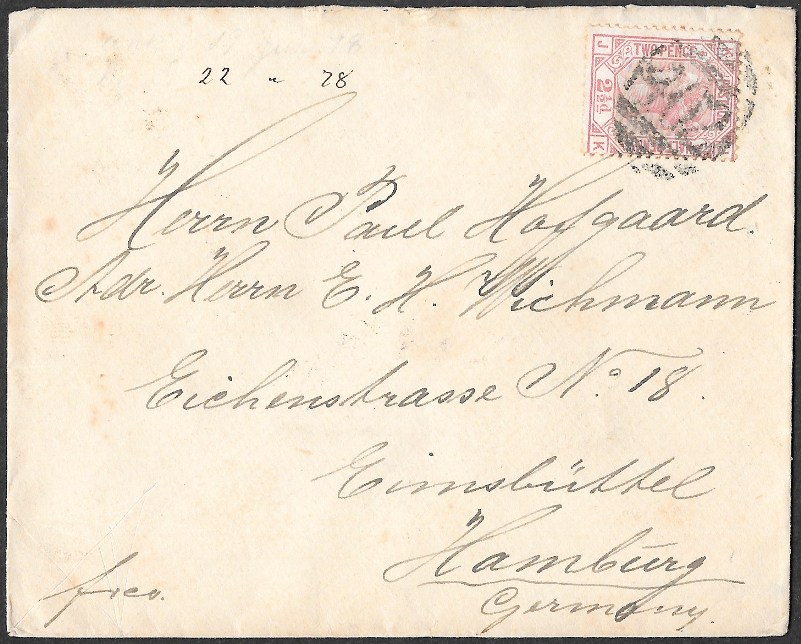 22 " 78
J
TWOPENCE
2½d
K
Herrn Paul Hofgaard.
Adr. Herrn E. H. Wichmann
Eichenstrasse No. 18.
Eimsbüttel
Hamburg
Germany.
frco.